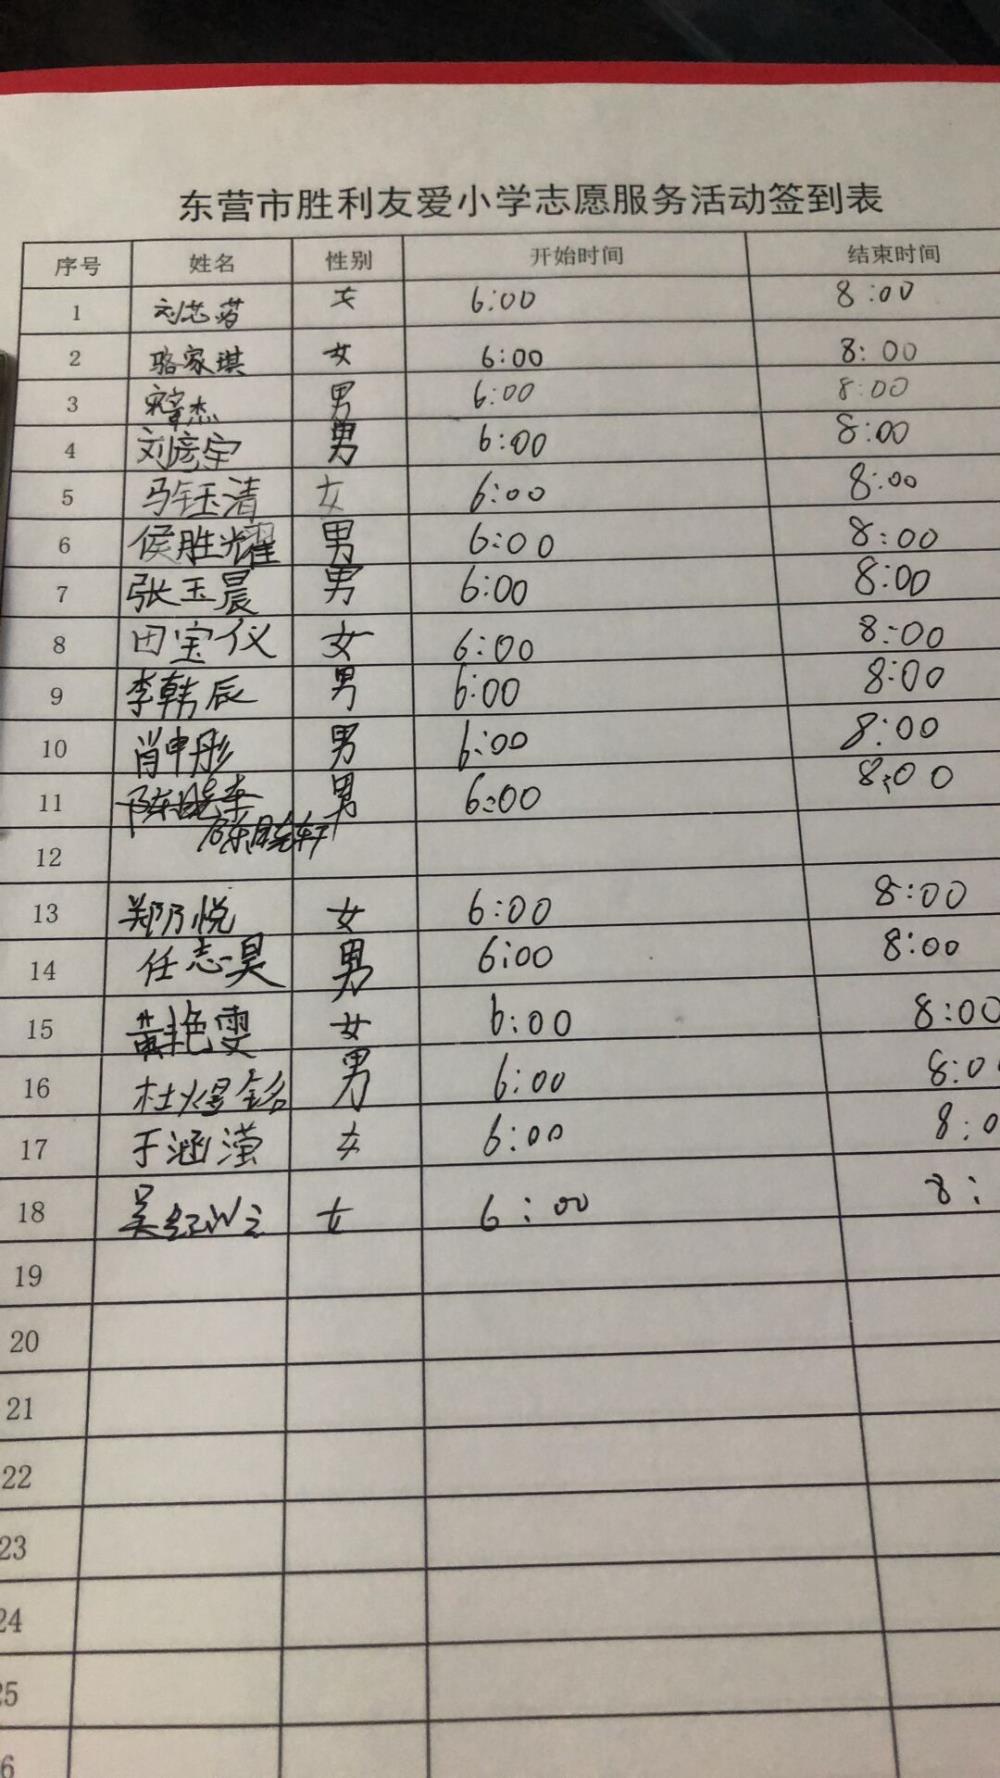 东营市胜利友爱小学志愿服务活动签到表
序号 姓名 性别 开始时间 结束时间
1 刘芯蕊 女 6:00 8:00
2 骆家琪 女 6:00 8:00
3 男 6:00 8:00
4 刘彦宇 男 6:00 8:00
5 马钰清 女 6:00 8:00
6 侯胜耀 男 6:00 8:00
7 张玉晨 男 6:00 8:00
8 田宝仪 女 6:00 8:00
9 李韩辰 男 6:00 8:00
10 肖申彤 男 6:00 8:00
11 男 6:00 8:00
陈晓轩
12
13 郑乃悦 女 6:00 8:00
14 任志昊 男 6:00 8:00
15 黄艳雯 女 6:00 8:00
16 杜煜铭 男 6:00 8:0
17 于涵滢 女 6:00 8:0
18 女 6:00 8:
19
20
21
22
23
24
25
6